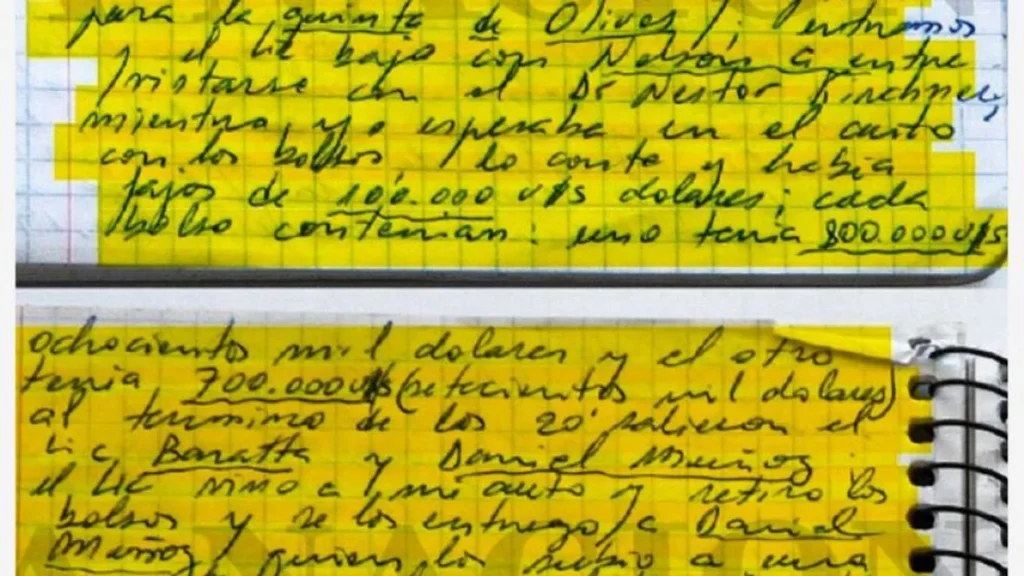 para la quinta de Olivos /; entramos
y el Lic bajo con Nelson G entre
/vistarse con el Dr Nestor Kirchner,
mientras, yo esperaba en el auto
con los bolsos, / lo conte y habia
fajos de 100.000 u$s dolares; cada
bolso contenian: uno tenia 800.000 u$s
ochocientos mil dolares y el otro
tenia 700.000 u$s (setecientos mil dolares)
al termino de los 20' salieron el
Lic Baratta y Daniel Muñoz
el Lic vino a mi auto y retiro los
bolsos y se los entrego /a Daniel
Muñoz / quien los subio a una